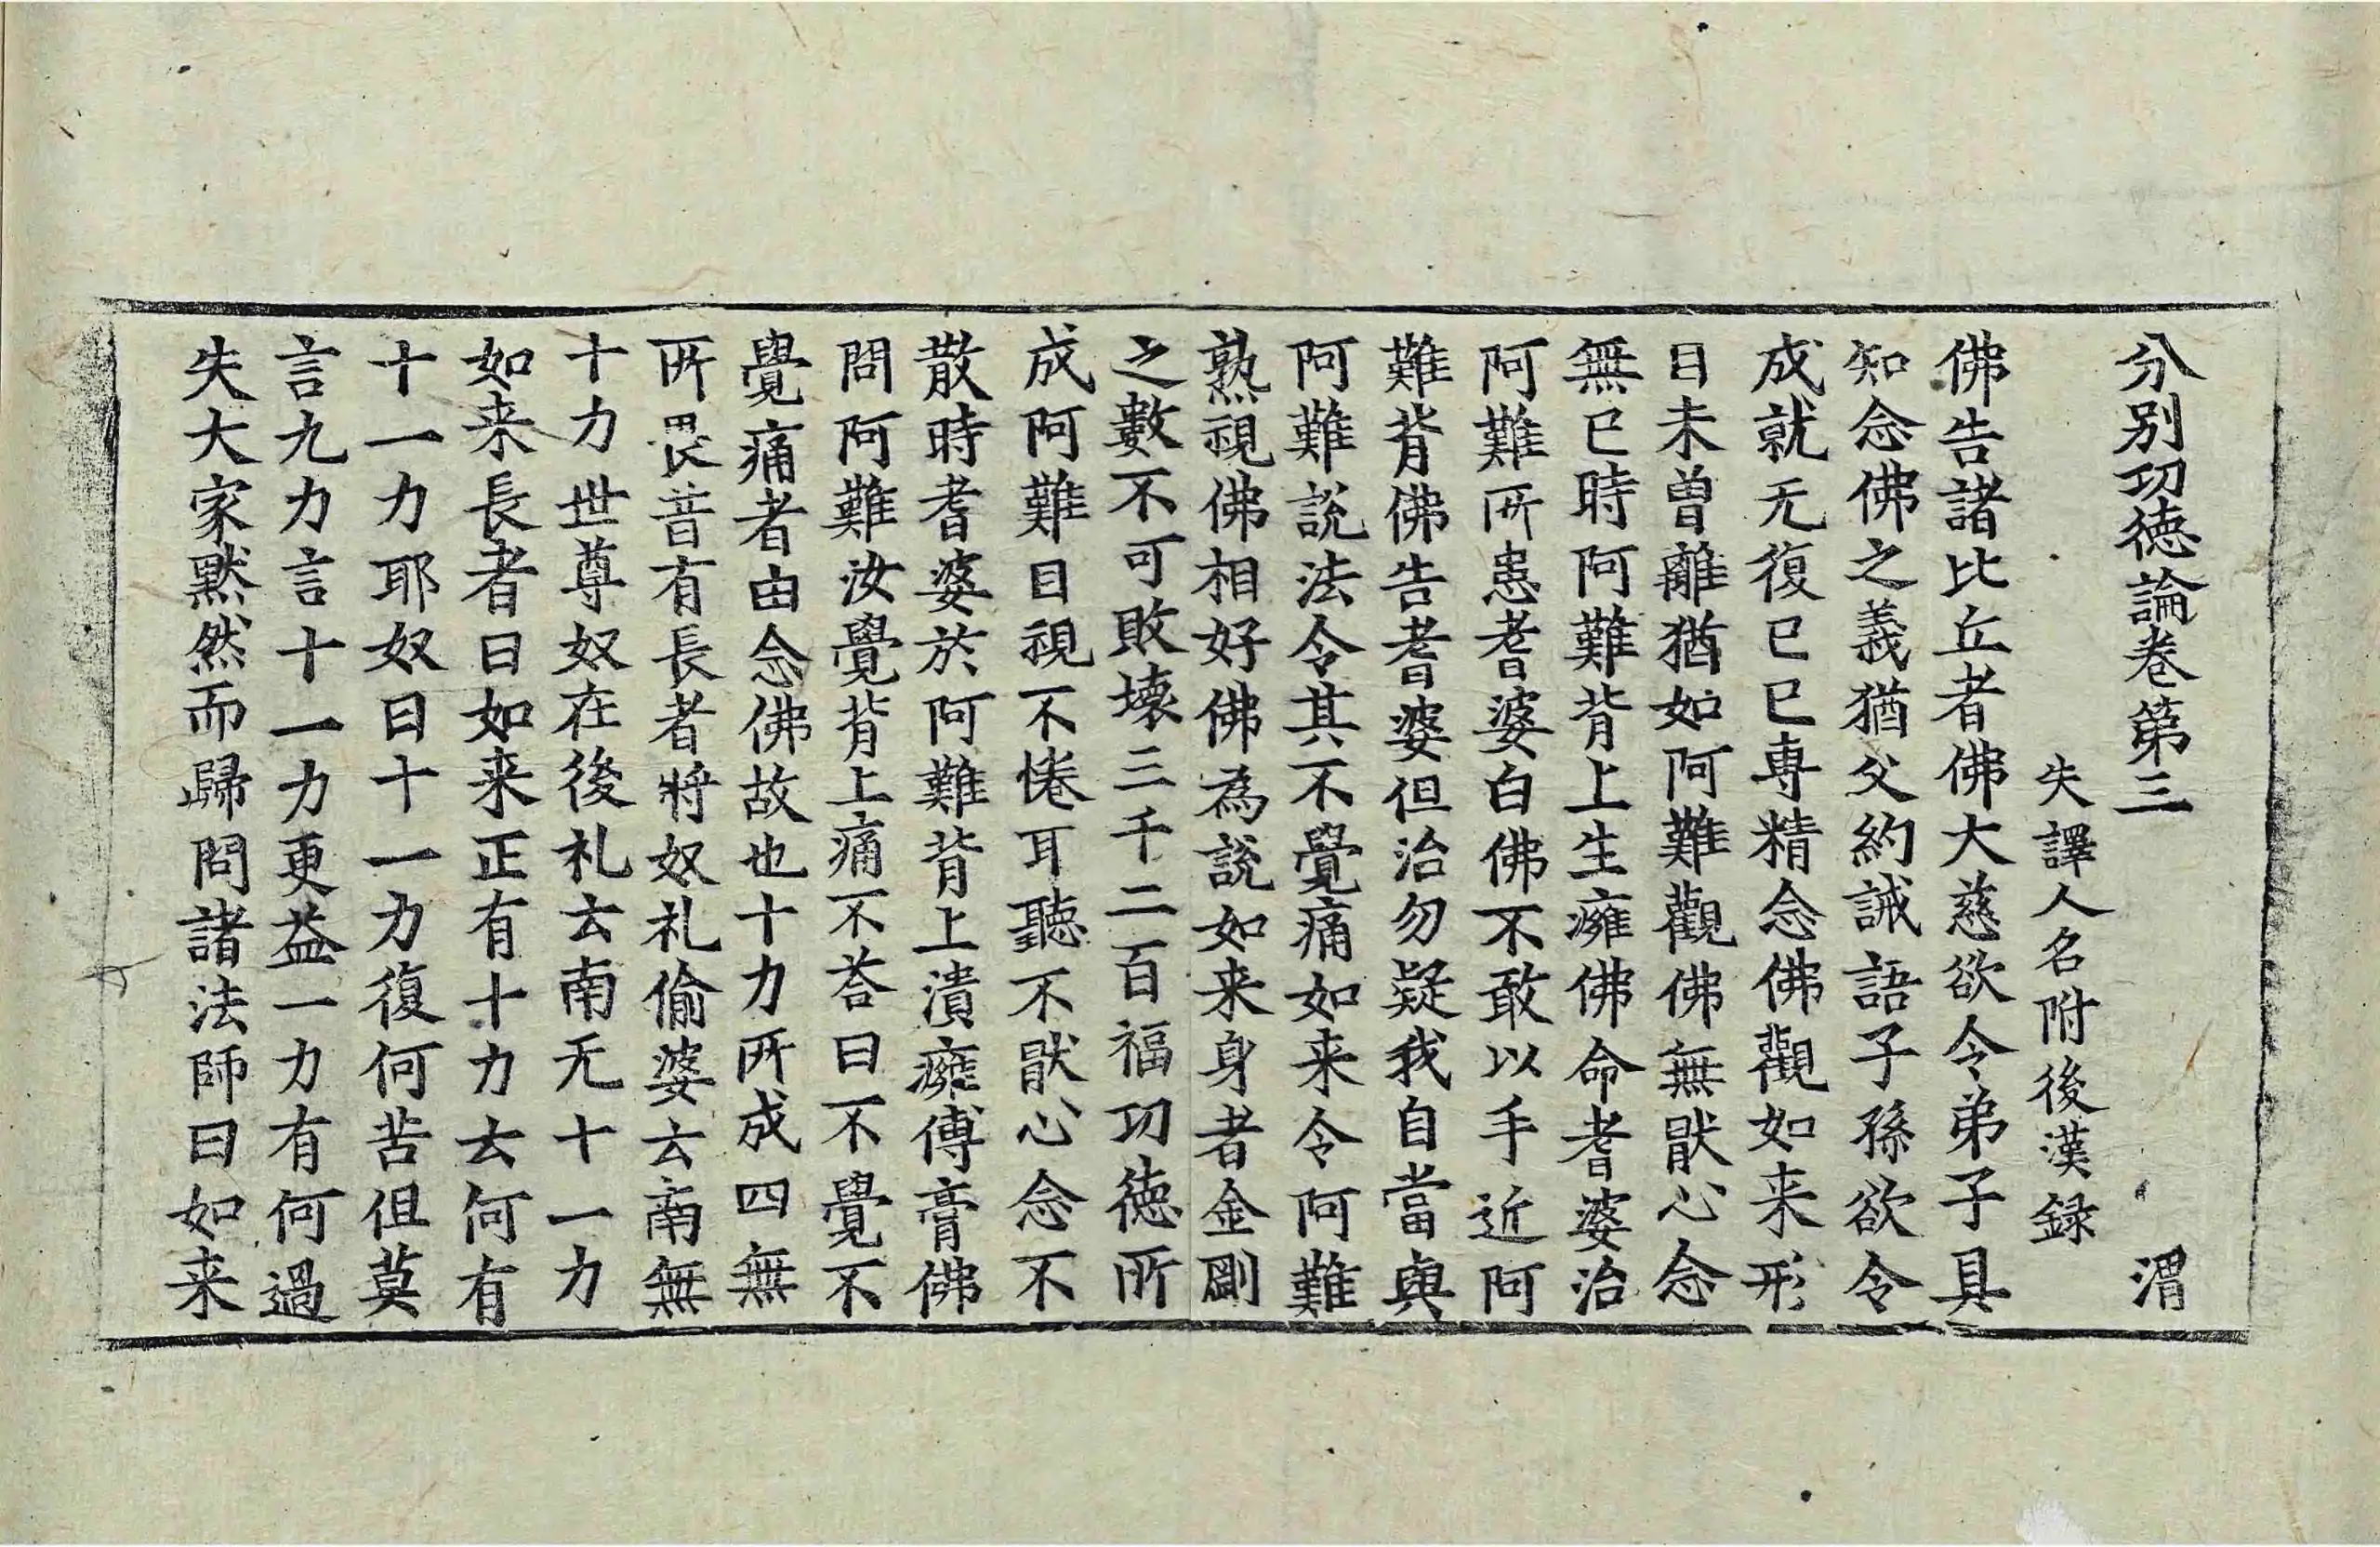 分別功德論卷第三 渭
失譯人名附後漢録
佛告諸比丘者佛大慈欲令弟子具
知念佛之義猶父約誡語子孫欲令
成就无復已已專精念佛觀如来形
目未曾離猶如阿難觀佛無猒心念
無已時阿難背上生癰佛命耆婆治
阿難所患耆婆白佛不敢以手近阿
難背佛告耆婆但治勿疑我自當與
阿難說法令其不覺痛如来令阿難
熟視佛相好佛為說如来身者金剛
之數不可敗壞三千二百福功德所
成阿難目視不惓耳聽不猒心念不
散時耆婆於阿難背上潰癰傅膏佛
問阿難汝覺背上痛不荅曰不覺不
覺痛者由念佛故也十力所成四無
所畏昔有長者將奴礼偷婆云南無
十力世尊奴在後礼云南无十一力
如来長者曰如来正有十力云何有
十一力耶奴曰十一力復何苦但莫
言九力言十一力更益一力有何過
失大家默然而歸問諸法師曰如来